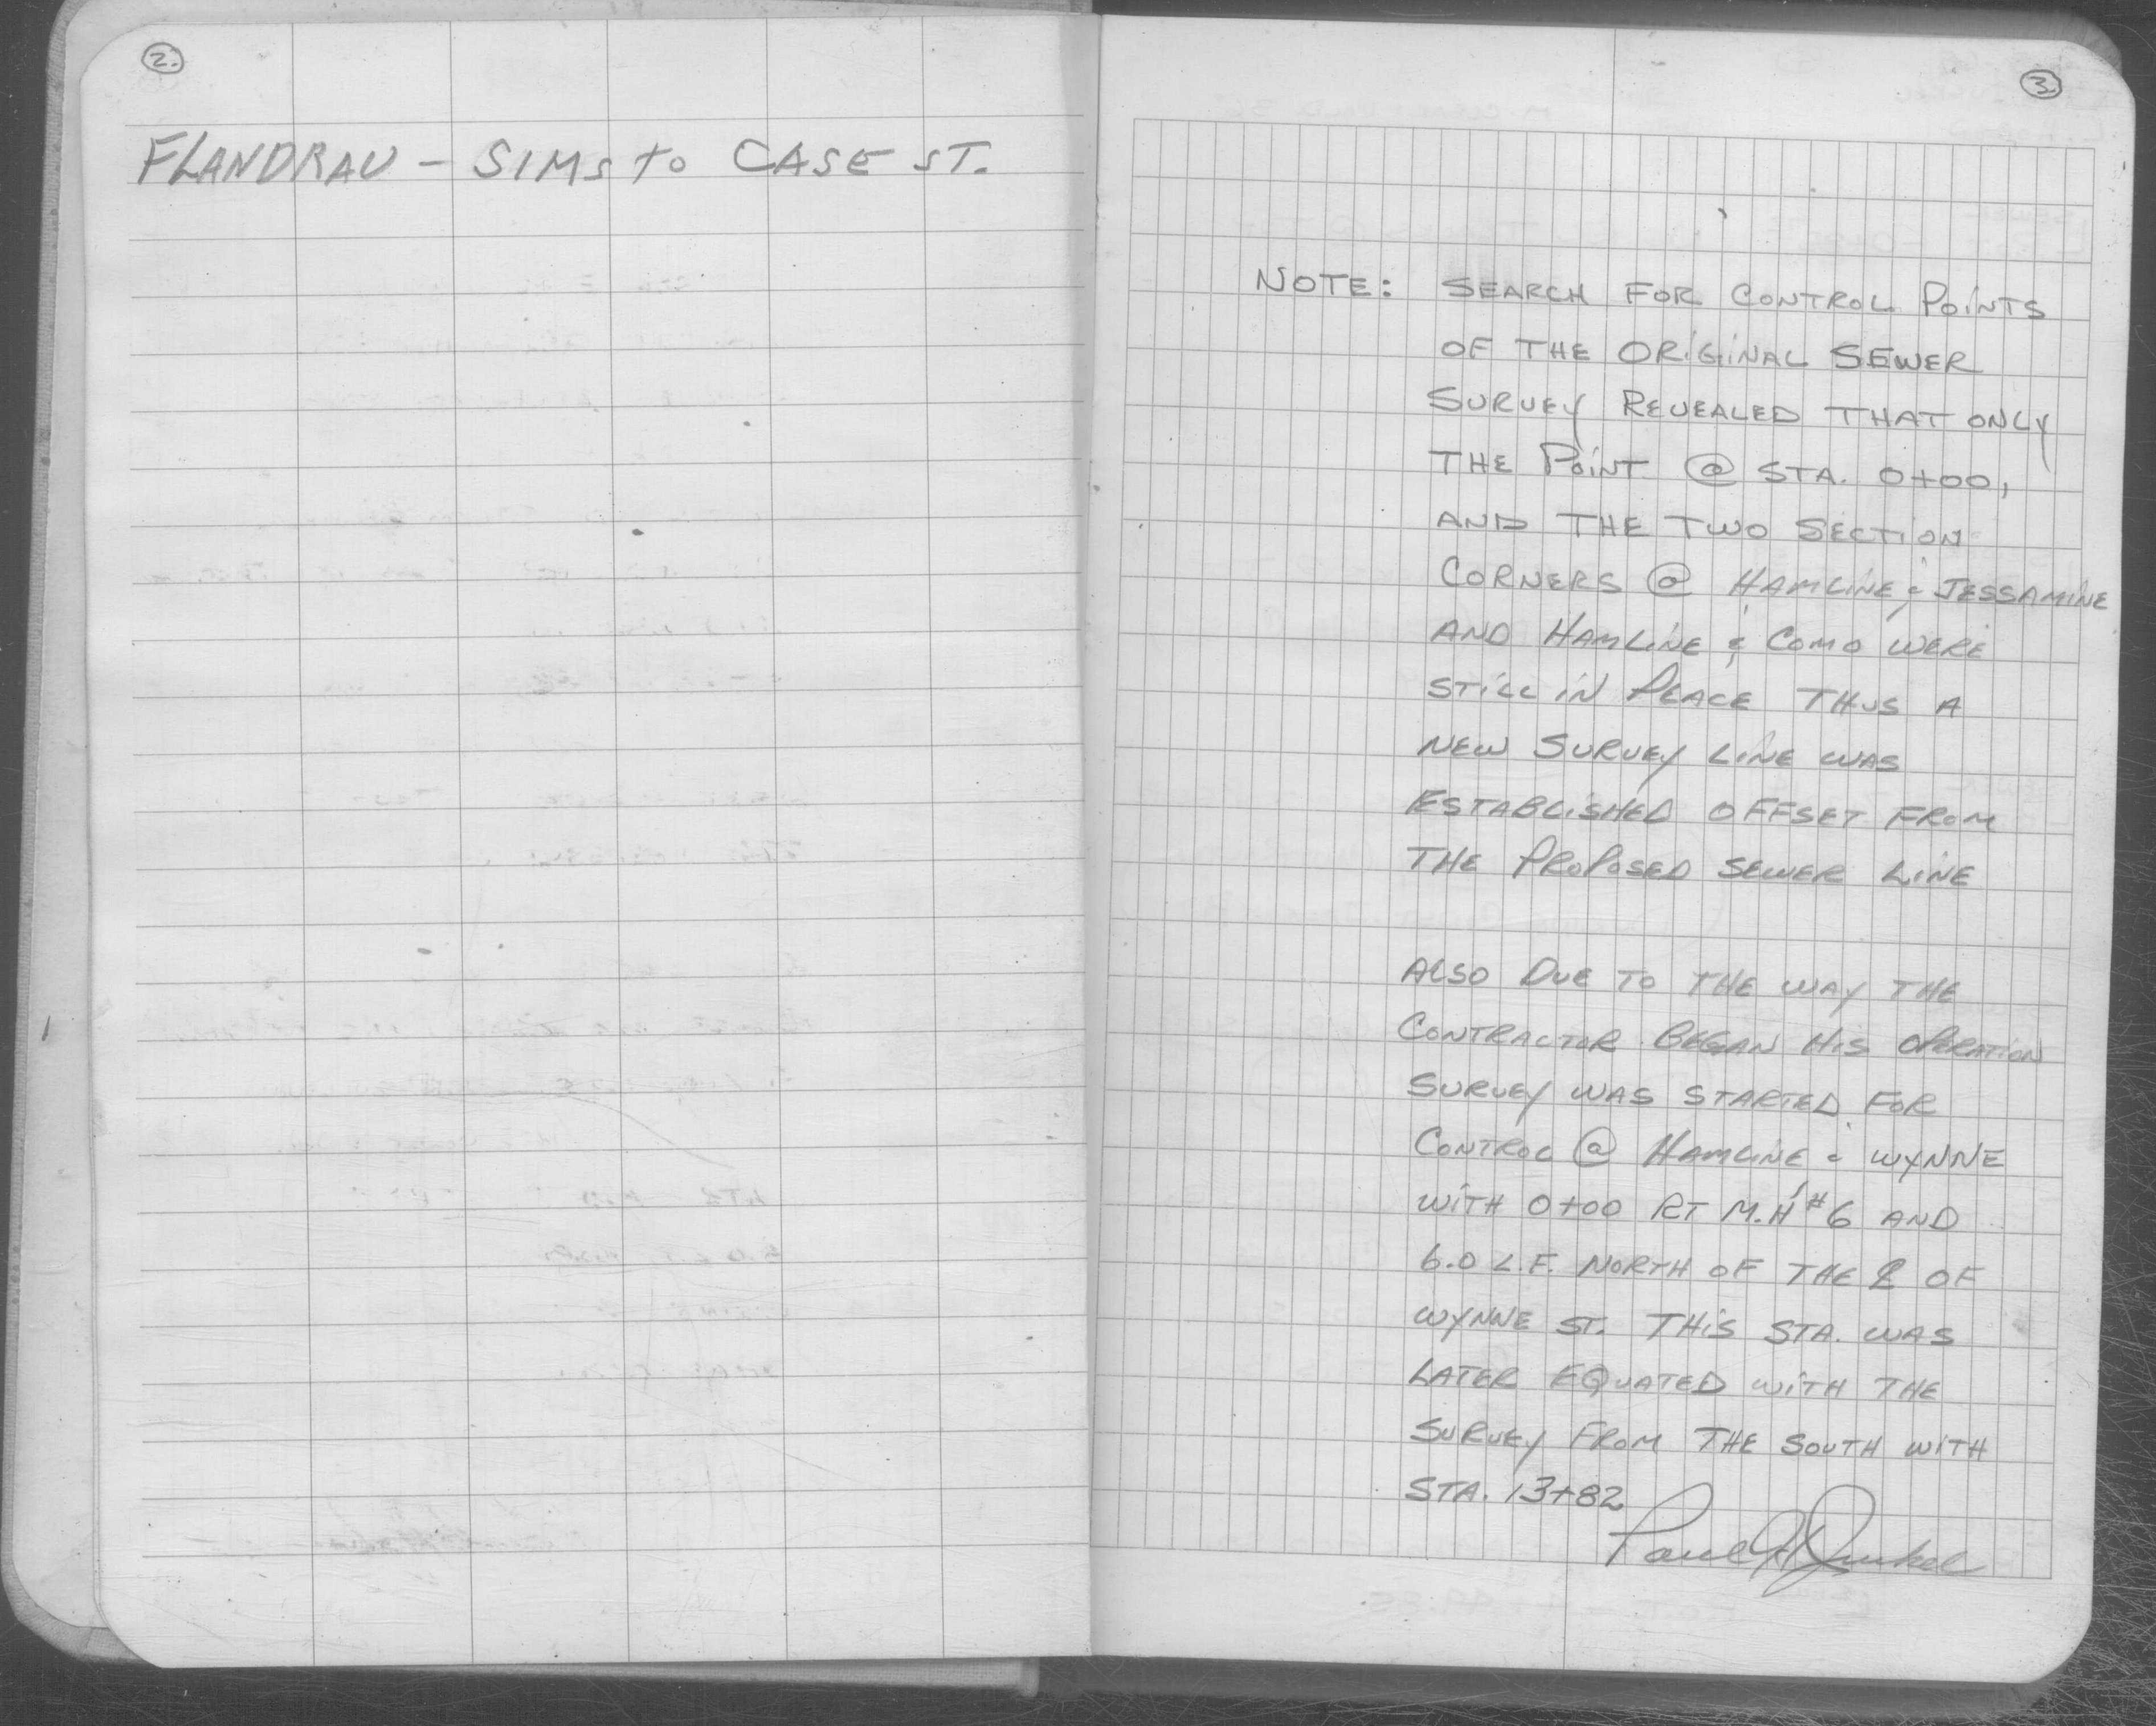 2.
FLANDRAU - SIMS to CASE ST.
3.
NOTE: SEARCH FOR CONTROL POINTS
OF THE ORIGINAL SEWER
SURVEY REVEALED THAT ONLY
THE POINT @ STA. 0+00,
AND THE TWO SECTION
CORNERS @ HAMLINE & JESSAMINE
AND HAMLINE & COMO WERE
STILL IN PLACE THUS A
NEW SURVEY LINE WAS
ESTABLISHED OFFSET FROM
THE PROPOSED SEWER LINE
ALSO DUE TO THE WAY THE
CONTRACTOR BEGAN HIS OPERATION
SURVEY WAS STARTED FOR
CONTROL @ HAMLINE & WYNNE
WITH 0+00 RT M.H #6 AND
6.0 L.F. NORTH OF THE ℄ OF
WYNNE ST. THIS STA. WAS
LATER EQUATED WITH THE
SURVEY FROM THE SOUTH WITH
STA. 13+82